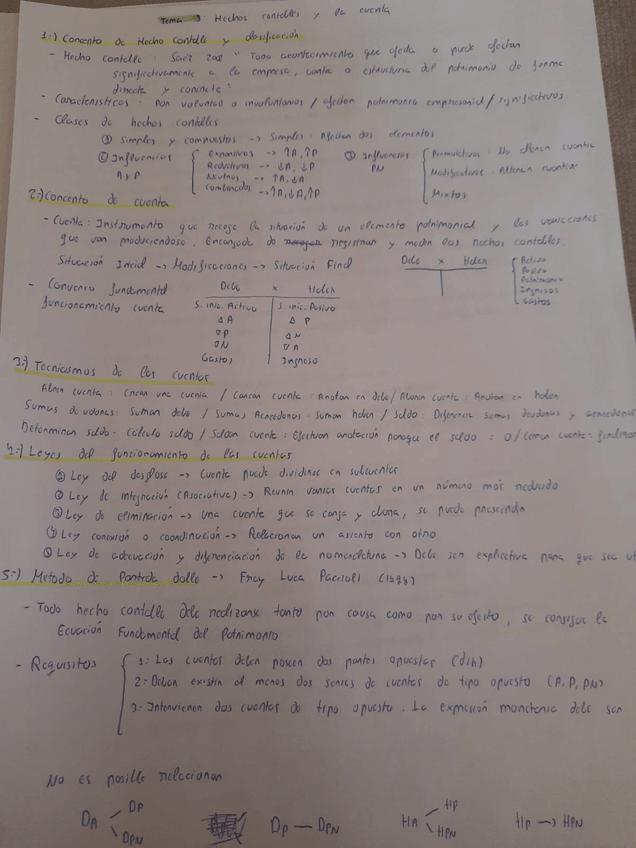 Tema 3: Hechos contables y la cuenta
1:) Concepto de Hecho Contable y clasificación
- Hecho contable: Saez "Todo acontecimiento que afecta o puede afectar
significativamente a la empresa, cuantía o estructura del patrimonio de forma
directa y concreta"
- Características: Por voluntad o involuntarios / afectan patrimonio empresarial / significativos
- Clases de hechos contables
① Simples y compuestos -> Simples: Afectan dos elementos
② Influencias A y P
Expansivos -> ↑A, ↑P
Reductivos -> ↓A, ↓P
Neutros -> ↑A, ↓A
Combinados -> ↑A, ↓A, ↑P
③ Influencias PN
Permutativos: No alteran cuantía
Modificativos: Alteran cuantía
Mixtos
2:) Concepto de cuenta
- Cuenta: Instrumento que recoge la situación de un elemento patrimonial y las variaciones
que van produciendose. Encargada de registrar y medir los hechos contables.
Situación Inicial -> Modificaciones -> Situación Final
Debe x Haber
Activo
Pasivo
Patrimonio
Ingresos
Gastos
- Convenio fundamental
funcionamiento cuenta
Debe x Haber
S. inic. Activo S. inic. Pasivo
Δ A Δ P
∇ P Δ N
∇ N ∇ A
Gastos Ingreso
3:) Tecnicismos de las cuentas
Abrir cuenta: Crear una cuenta / Cargar cuenta: Anotar en debe / Abonar cuenta: Anotar en haber
Sumas deudoras: Suman debe / Sumas Acreedoras: Suman haber / Saldo: Diferencia sumas deudoras y acreedoras
Determinar saldo: Cálculo saldo / Saldar cuenta: Efectuar anotación para que el saldo = 0 / Cerrar cuenta =
4:) Leyes del funcionamiento de las cuentas
① Ley del desglose -> Cuenta puede dividirse en subcuentas
② Ley de integración (Asociativa) -> Reunir varias cuentas en un número más reducido
③ Ley de eliminación -> una cuenta que se carga y abona, se puede prescindir
④ Ley conexión o coordinación -> Relacionan un asiento con otro
⑤ Ley de adecuación y diferenciación de la nomenclatura -> Debe ser explicativa para que sea
5:) Metodo de Partida doble -> Fray Luca Paccioli
- Todo hecho contable debe realizarse tanto por causa como por su efecto, se consigue la
Ecuación Fundamental del Patrimonio
- Requisitos
1: Las cuentas deben poseer dos partes opuestas (d/h)
2: Deben existir al menos dos series de cuentas de tipo opuesto (A, P, PN)
3: Intervienen dos cuentas de tipo opuesto. La expresión monetaria debe ser
No es posible relacionar
DA DP DPN
DP — DPN
HA HP HPN
HP -> HPN